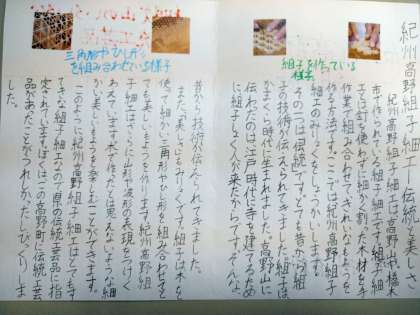 紀州高野組子細工―伝統と美
紀州高野組子細工は高野町や橋本
市で作られている組子細工です。組子細
工は釘を使わずに細かく割った木材を手
作業で組み合わせてきれいなもようを
作る方法です。ここでは紀州高野組子
細工のみりょくをしょうかいします。
その一つは伝統です。とても昔から組
子の技術が伝えられてきました。組子は
かまくら時代に生まれました。高野山に
伝わったのは、江戸時代に寺を建てるため
に組子しょく人が来たからです。そんな
昔から技術が伝えられてきました。
また、「美しさ」もみりょくです。組子は木を
使って細かい三角形やひし形を組み合わせてと
ても美しいもようを作ります。紀州高野組
子細工はさらに山形や波形の表現をつけく
わえています。木で作ったとは思えないような細
かく美しいもようを楽しむことができます。
このように紀州高野組子細工はとてもす
てきな組子細工なので県の伝統工芸品に指
定されています。ぼくはこの高野町に伝統工芸
品があったことがうれしかったしびっくりしま
した。
組子を作っている
様子
三角形やひし形
を組み合わせている様子